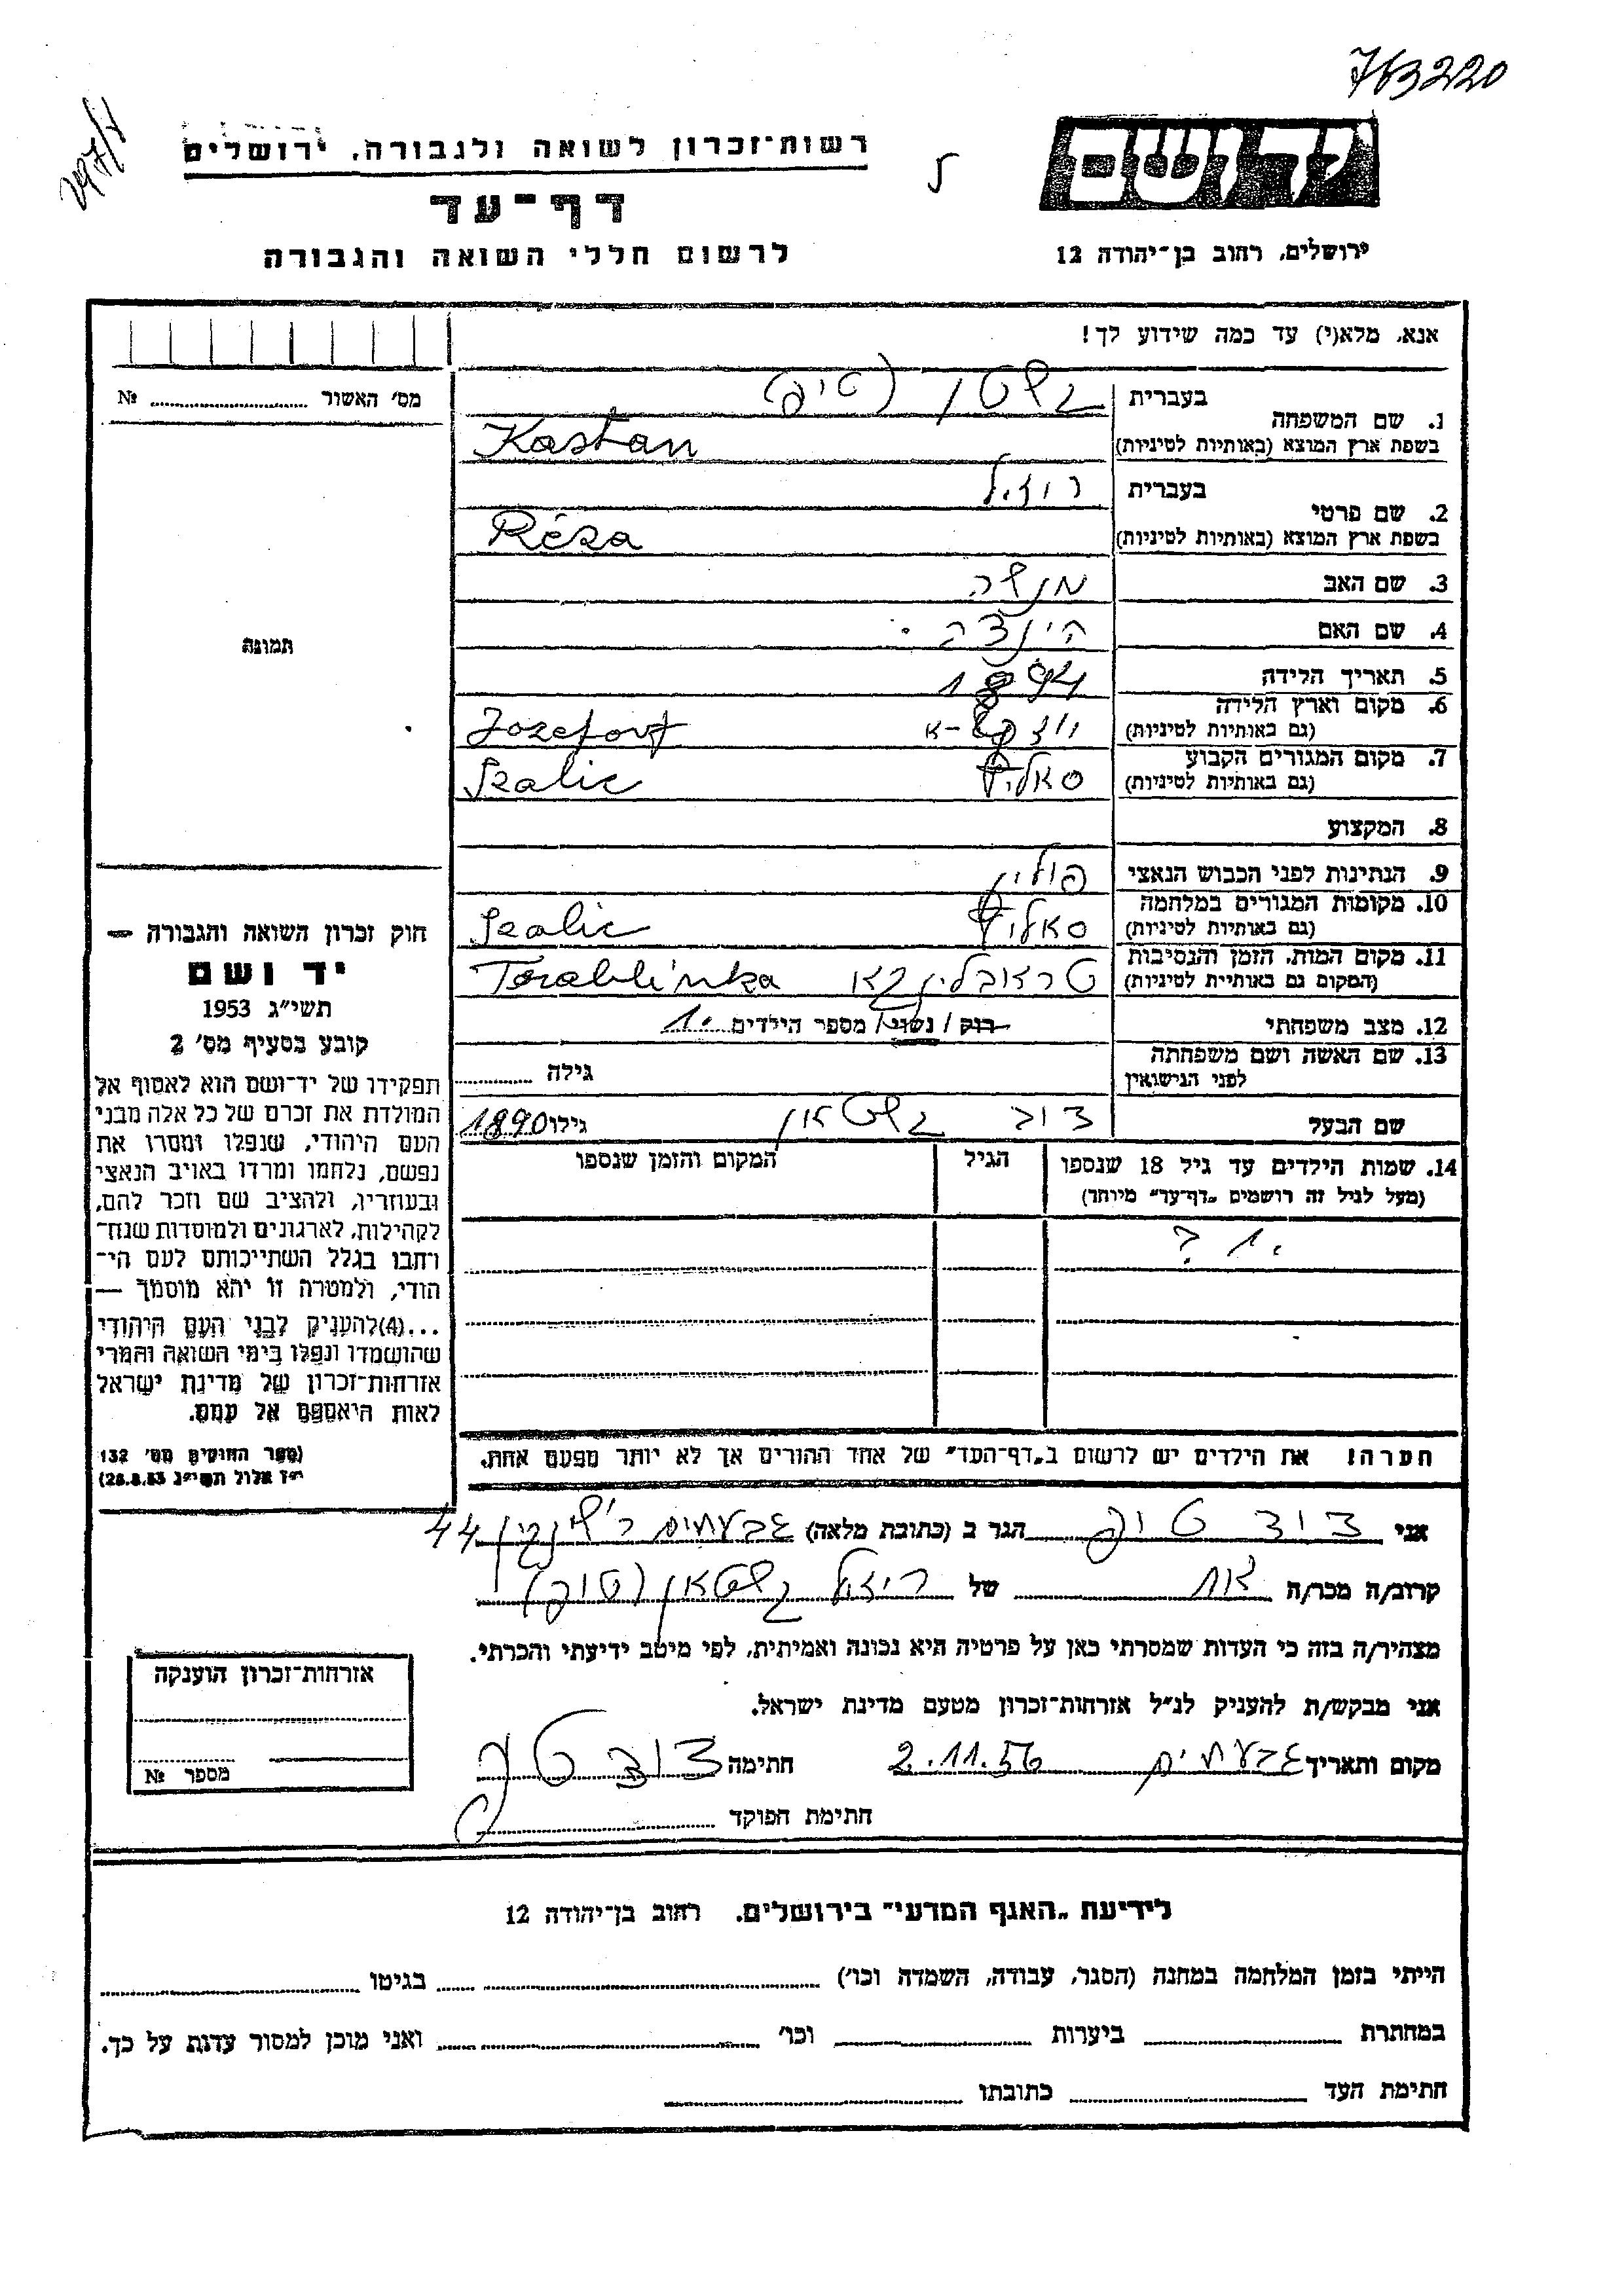 763220
רשות־זכרון לשואה ולגבורה, ירושלים
דף־עד
לרשום חללי השואה והגבורה
יד ושם
ירושלים, רחוב בן־יהודה 12
אנא, מלא(י) עד כמה שידוע לך!
מס׳ האשור № 
תמונה
1. שם המשפחה
בעברית קשטן
בשפת ארץ המוצא (באותיות לטיניות) Kastan
2. שם פרטי
בעברית רוזיל
בשפת ארץ המוצא (באותיות לטיניות) Réza
3. שם האב מנשה
4. שם האם הינדה
5. תאריך הלידה 1894
6. מקום וארץ הלידה
(גם באותיות לטיניות) Jozefow
7. מקום המגורים הקבוע
(גם באותיות לטיניות) סאליץ Szalic
8. המקצוע
9. הנתינות לפני הכבוש הנאצי פולין
10. מקומות המגורים במלחמה
(גם באותיות לטיניות) סאליץ Szalic
11. מקום המות, הזמן והנסיבות
(המקום גם באותיית לטיניות) טראבלינקא Torablinka
12. מצב משפחתי רוק / נשוי / מספר הילדים 1.
13. שם האשה ושם משפחתה
לפני הנישואין גילה
שם הבעל דוב קשטאן גילו 1890
14. שמות הילדים עד גיל 18 שנספו
(מעל לגיל זה רושמים „דף־עד״ מיוחד)
הגיל
המקום והזמן שנספו
1. ?
חוק זכרון השואה והגבורה —
יד ושם
תשי״ג 1953
קובע בסעיף מס׳ 2
תפקידו של יד־ושם הוא לאסוף אל
המולדת את זכרם של כל אלה מבני
העם היהודי, שנפלו ומסרו את
נפשם, נלחמו ומרדו באויב הנאצי
ובעוזריו, ולהציב שם וזכר להם,
לקהילות, לארגונים ולמוסדות שנח־
רחבו בגלל השתייכותם לעם הי־
הודי, ולמטרה זו יהא מוסמך —
...(4)להעניק לבני העם היהודי
שהושמדו ונפלו בימי השואה והמרי
אזרחות־זכרון של מדינת ישראל
לאות היאספם אל עמם.
(ספר החוקים מס׳ 132
י״ז אלול תשי״ג 28.8.53)
הערה! את הילדים יש לרשום ב„דף־העד״ של אחד ההורים אך לא יותר מפעם אחת.
אני דוד טוק הגר ב (כתובת מלאה) גבעתיים 44
קרוב/ה מכר/ה אח של ריזל קשטאן (טוק)
מצהיר/ה בזה כי העדות שמסרתי כאן על פרטיה היא נכונה ואמיתית, לפי מיטב ידיעתי והכרתי.
אני מבקש/ת להעניק לנ״ל אזרחות־זכרון מטעם מדינת ישראל.
מקום ותאריך גבעתיים 2.11.56 חתימה
חתימת הפוקד
אזרחות־זכרון הוענקה
מספר №
לידיעת „האגף המדעי״ בירושלים. רחוב בן־יהודה 12
הייתי בזמן המלחמה במחנה (הסגר, עבודה, השמדה וכו׳) בגיטו
במחתרת ביערות וכו׳ ואני מוכן למסור עדות על כך.
חתימת העד כתובתו